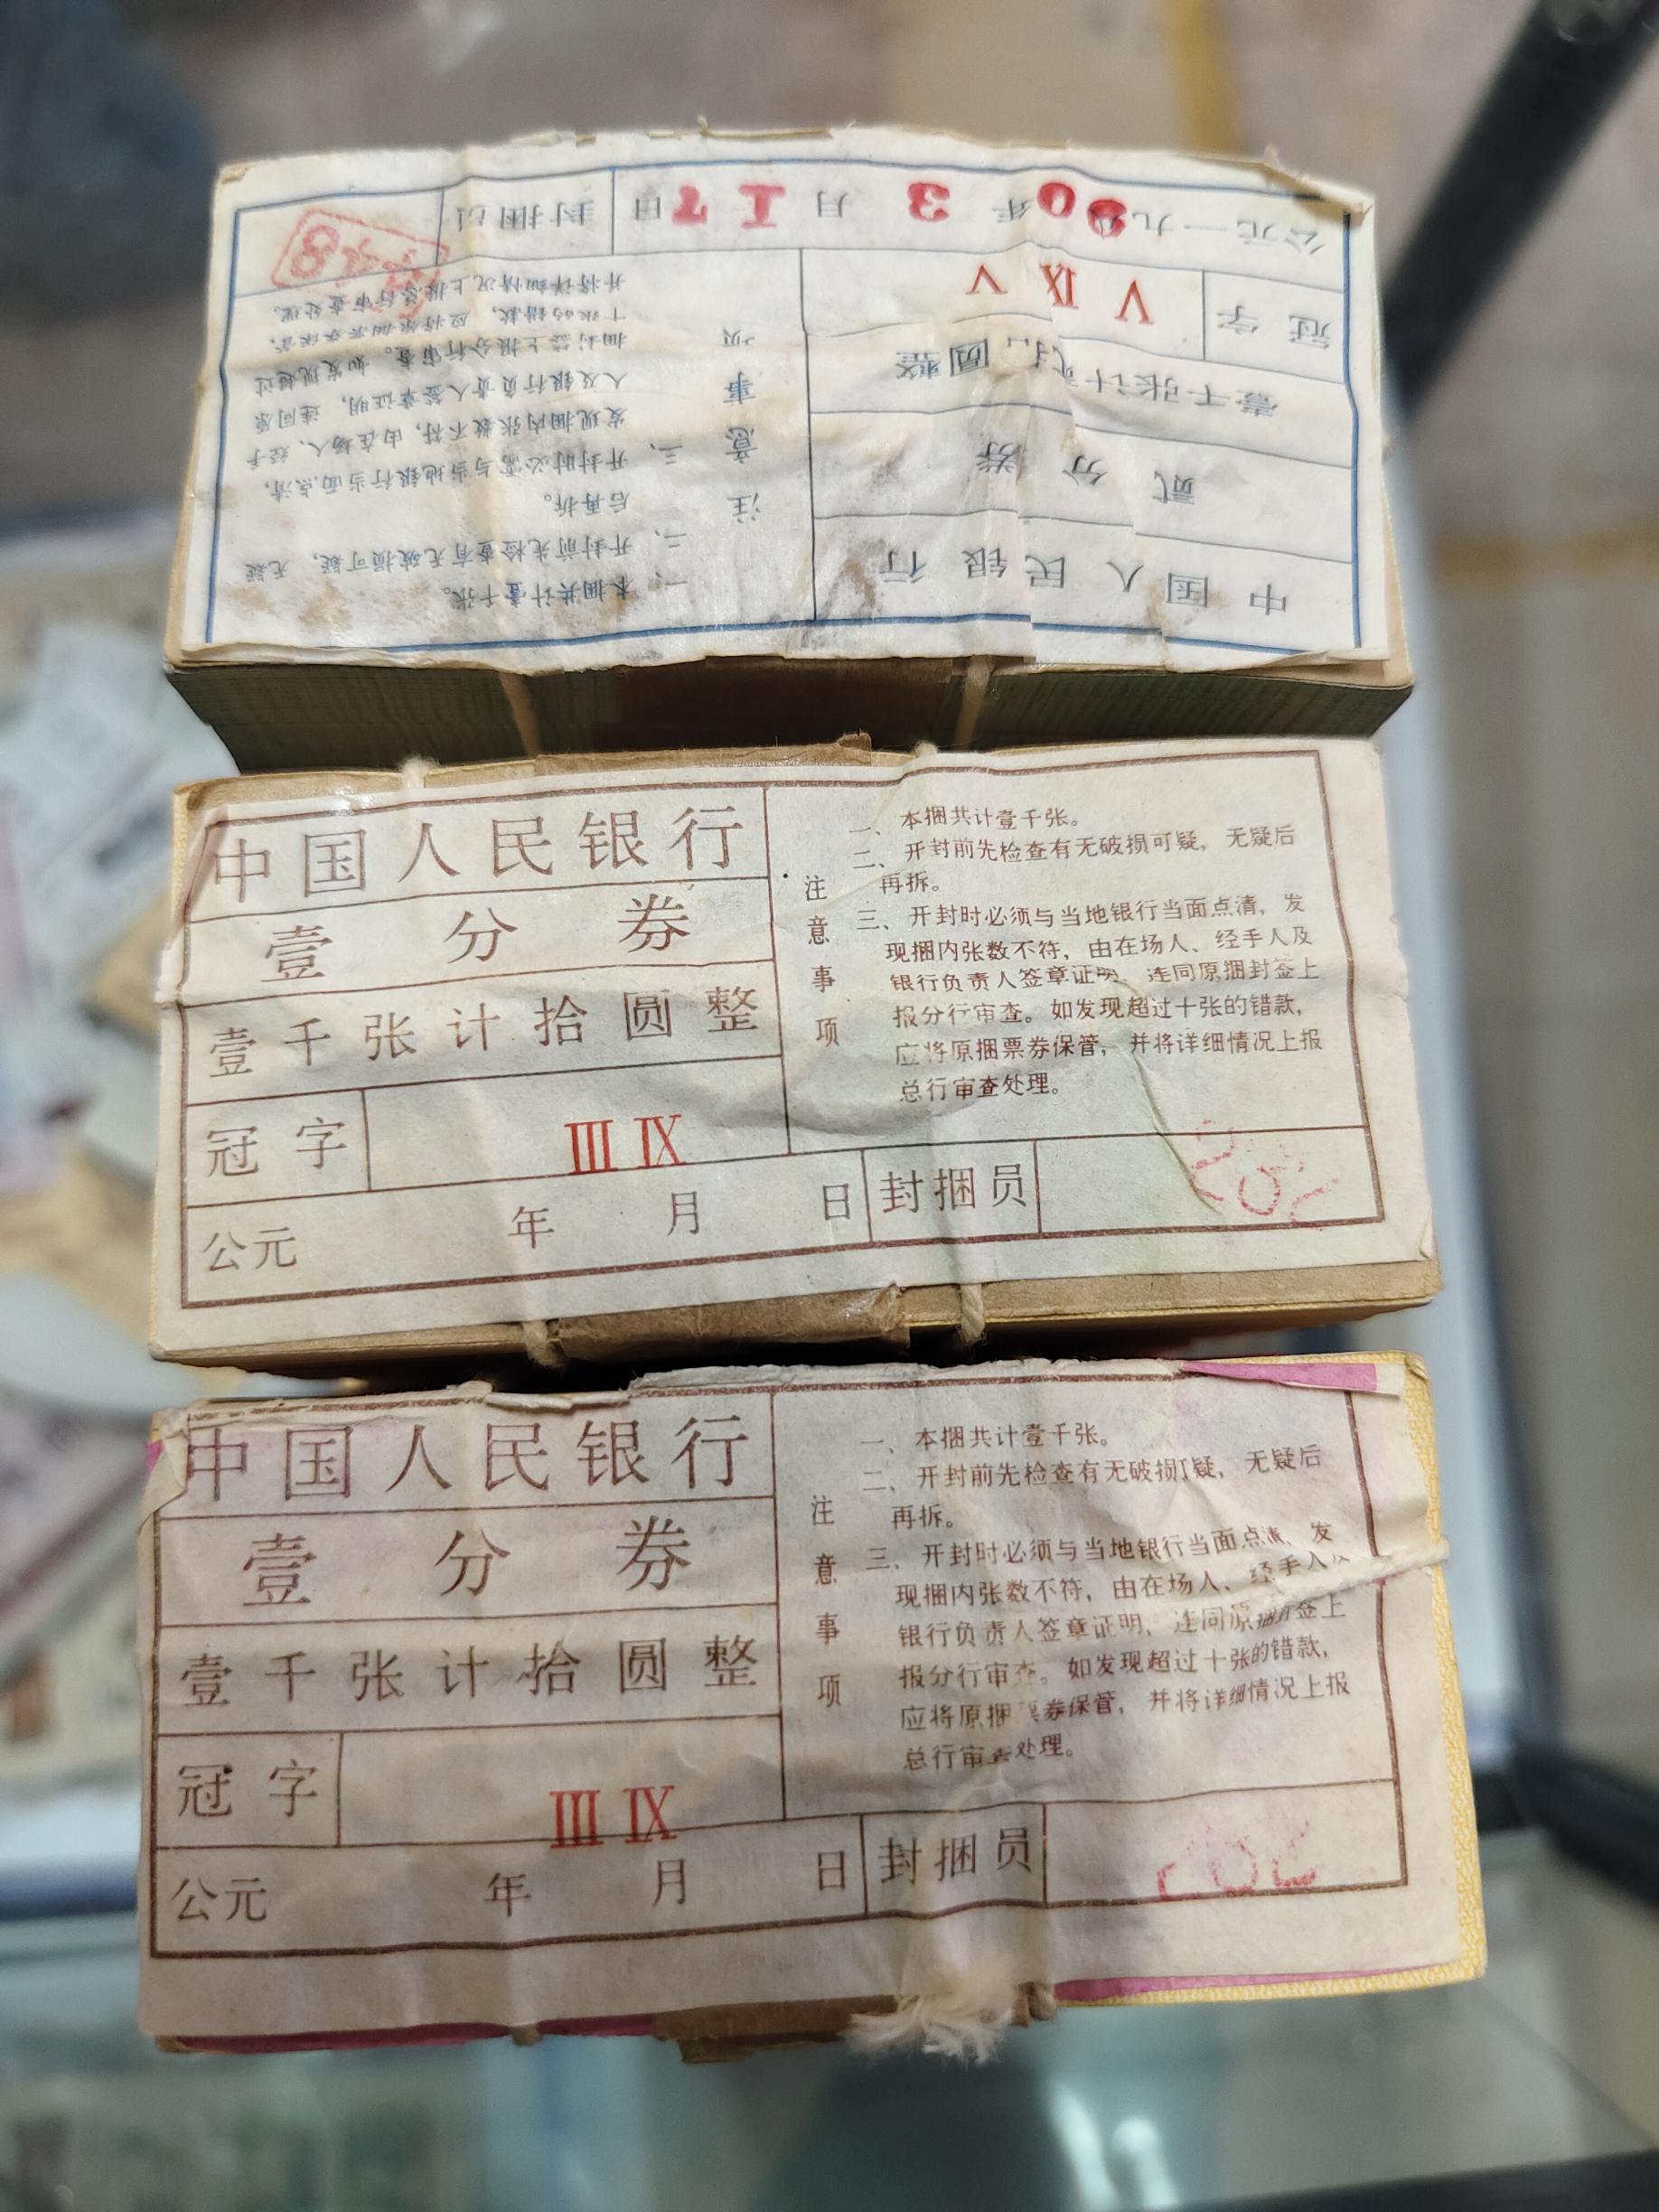 中国人民银行
贰分券
壹千张计贰 圆整
冠字 V IX V
公元一九90年3月17日 封捆员
注意事项
一、本捆共计壹千张。
二、开封前先检查有无破损可疑，无疑
后再拆。
三、开封时必需与当地银行当面点清，
发现捆内张数不符，由在场人、经手
人及银行负责人签章证明，连同原
捆封签上报分行审查。如发现超过
十张的错款，应将原捆票券保管，
并将详细情况上报总行审查处理。
中国人民银行
壹分券
壹千张计拾圆整
冠字 III IX
公元 年 月 日 封捆员
注意事项
一、本捆共计壹千张。
二、开封前先检查有无破损可疑，无疑后
再拆。
三、开封时必须与当地银行当面点清，发
现捆内张数不符，由在场人、经手人及
银行负责人签章证明、连同原捆封签上
报分行审查。如发现超过十张的错款，
应将原捆票券保管，并将详细情况上报
总行审查处理。
中国人民银行
壹分券
壹千张计拾圆整
冠字 III IX
公元 年 月 日 封捆员
注意事项
一、本捆共计壹千张。
二、开封前先检查有无破损可疑，无疑后
再拆。
三、开封时必须与当地银行当面点清、发
现捆内张数不符，由在场人、经手人及
银行负责人签章证明、连同原捆封签上
报分行审查。如发现超过十张的错款，
应将原捆票券保管，并将详细情况上报
总行审查处理。